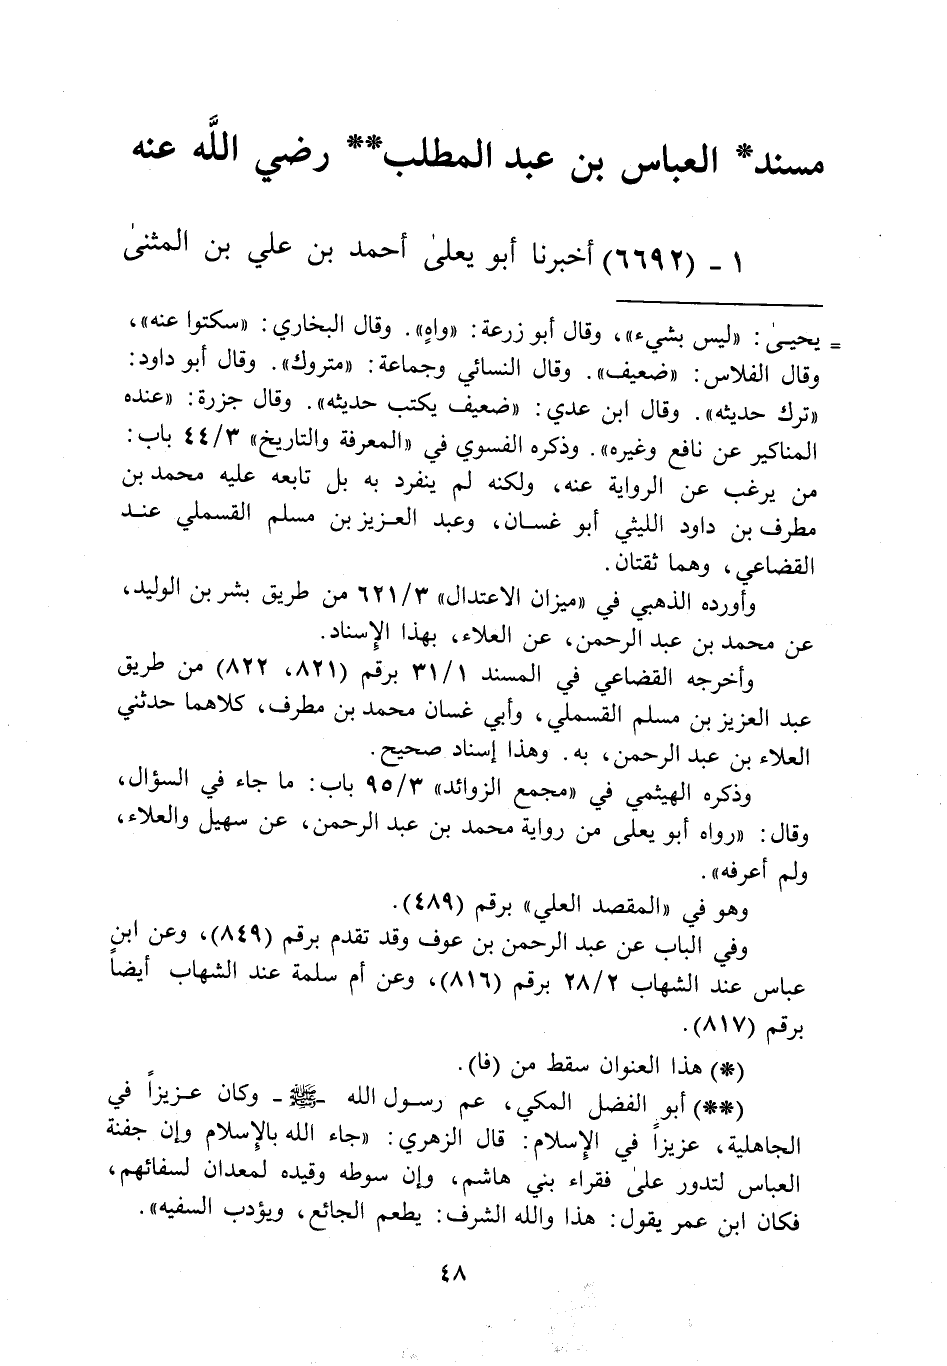 مسند* العباس بن عبد المطلب** رضي اللَّه عنه
١ - (٦٦٩٢) أخبرنا أبو يعلىٰ أحمد بن علي بن المثنىٰ
= يحيىٰ: «ليس بشيء»، وقال أبو زرعة: «واهٍ». وقال البخاري: «سكتوا عنه»،
وقال الفلاس: «ضعيف». وقال النسائي وجماعة: «متروك». وقال أبو داود:
«ترك حديثه». وقال ابن عدي: «ضعيف يكتب حديثه». وقال جزرة: «عنده
المناكير عن نافع وغيره». وذكره الفسوي في «المعرفة والتاريخ» ٤٤/٣ باب:
من يرغب عن الرواية عنه، ولكنه لم ينفرد به بل تابعه عليه محمد بن
مطرف بن داود الليثي أبو غسان، وعبد العزيز بن مسلم القسملي عند
القضاعي، وهما ثقتان.
وأورده الذهبي في «ميزان الاعتدال» ٦٢١/٣ من طريق بشر بن الوليد،
عن محمد بن عبد الرحمن، عن العلاء، بهذا الإسناد.
وأخرجه القضاعي في المسند ٣١/١ برقم (٨٢١، ٨٢٢) من طريق
عبد العزيز بن مسلم القسملي، وأبي غسان محمد بن مطرف، كلاهما حدثني
العلاء بن عبد الرحمن، به. وهذا إسناد صحيح.
وذكره الهيثمي في «مجمع الزوائد» ٩٥/٣ باب: ما جاء في السؤال،
وقال: «رواه أبو يعلى من رواية محمد بن عبد الرحمن، عن سهيل والعلاء،
ولم أعرفه».
وهو في «المقصد العلي» برقم (٤٨٩).
وفي الباب عن عبد الرحمن بن عوف وقد تقدم برقم (٨٤٩)، وعن ابن
عباس عند الشهاب ٢٨/٢ برقم (٨١٦)، وعن أم سلمة عند الشهاب أيضاً
برقم (٨١٧).
(*) هذا العنوان سقط من (فا).
(**) أبو الفضل المكي، عم رسول الله -ﷺ- وكان عزيزاً في
الجاهلية، عزيزاً في الإسلام: قال الزهري: «جاء الله بالإسلام وإن جفنة
العباس لتدور علىٰ فقراء بني هاشم، وإن سوطه وقيده لمعدان لسفائهم،
فكان ابن عمر يقول: هذا والله الشرف: يطعم الجائع، ويؤدب السفيه».
٤٨